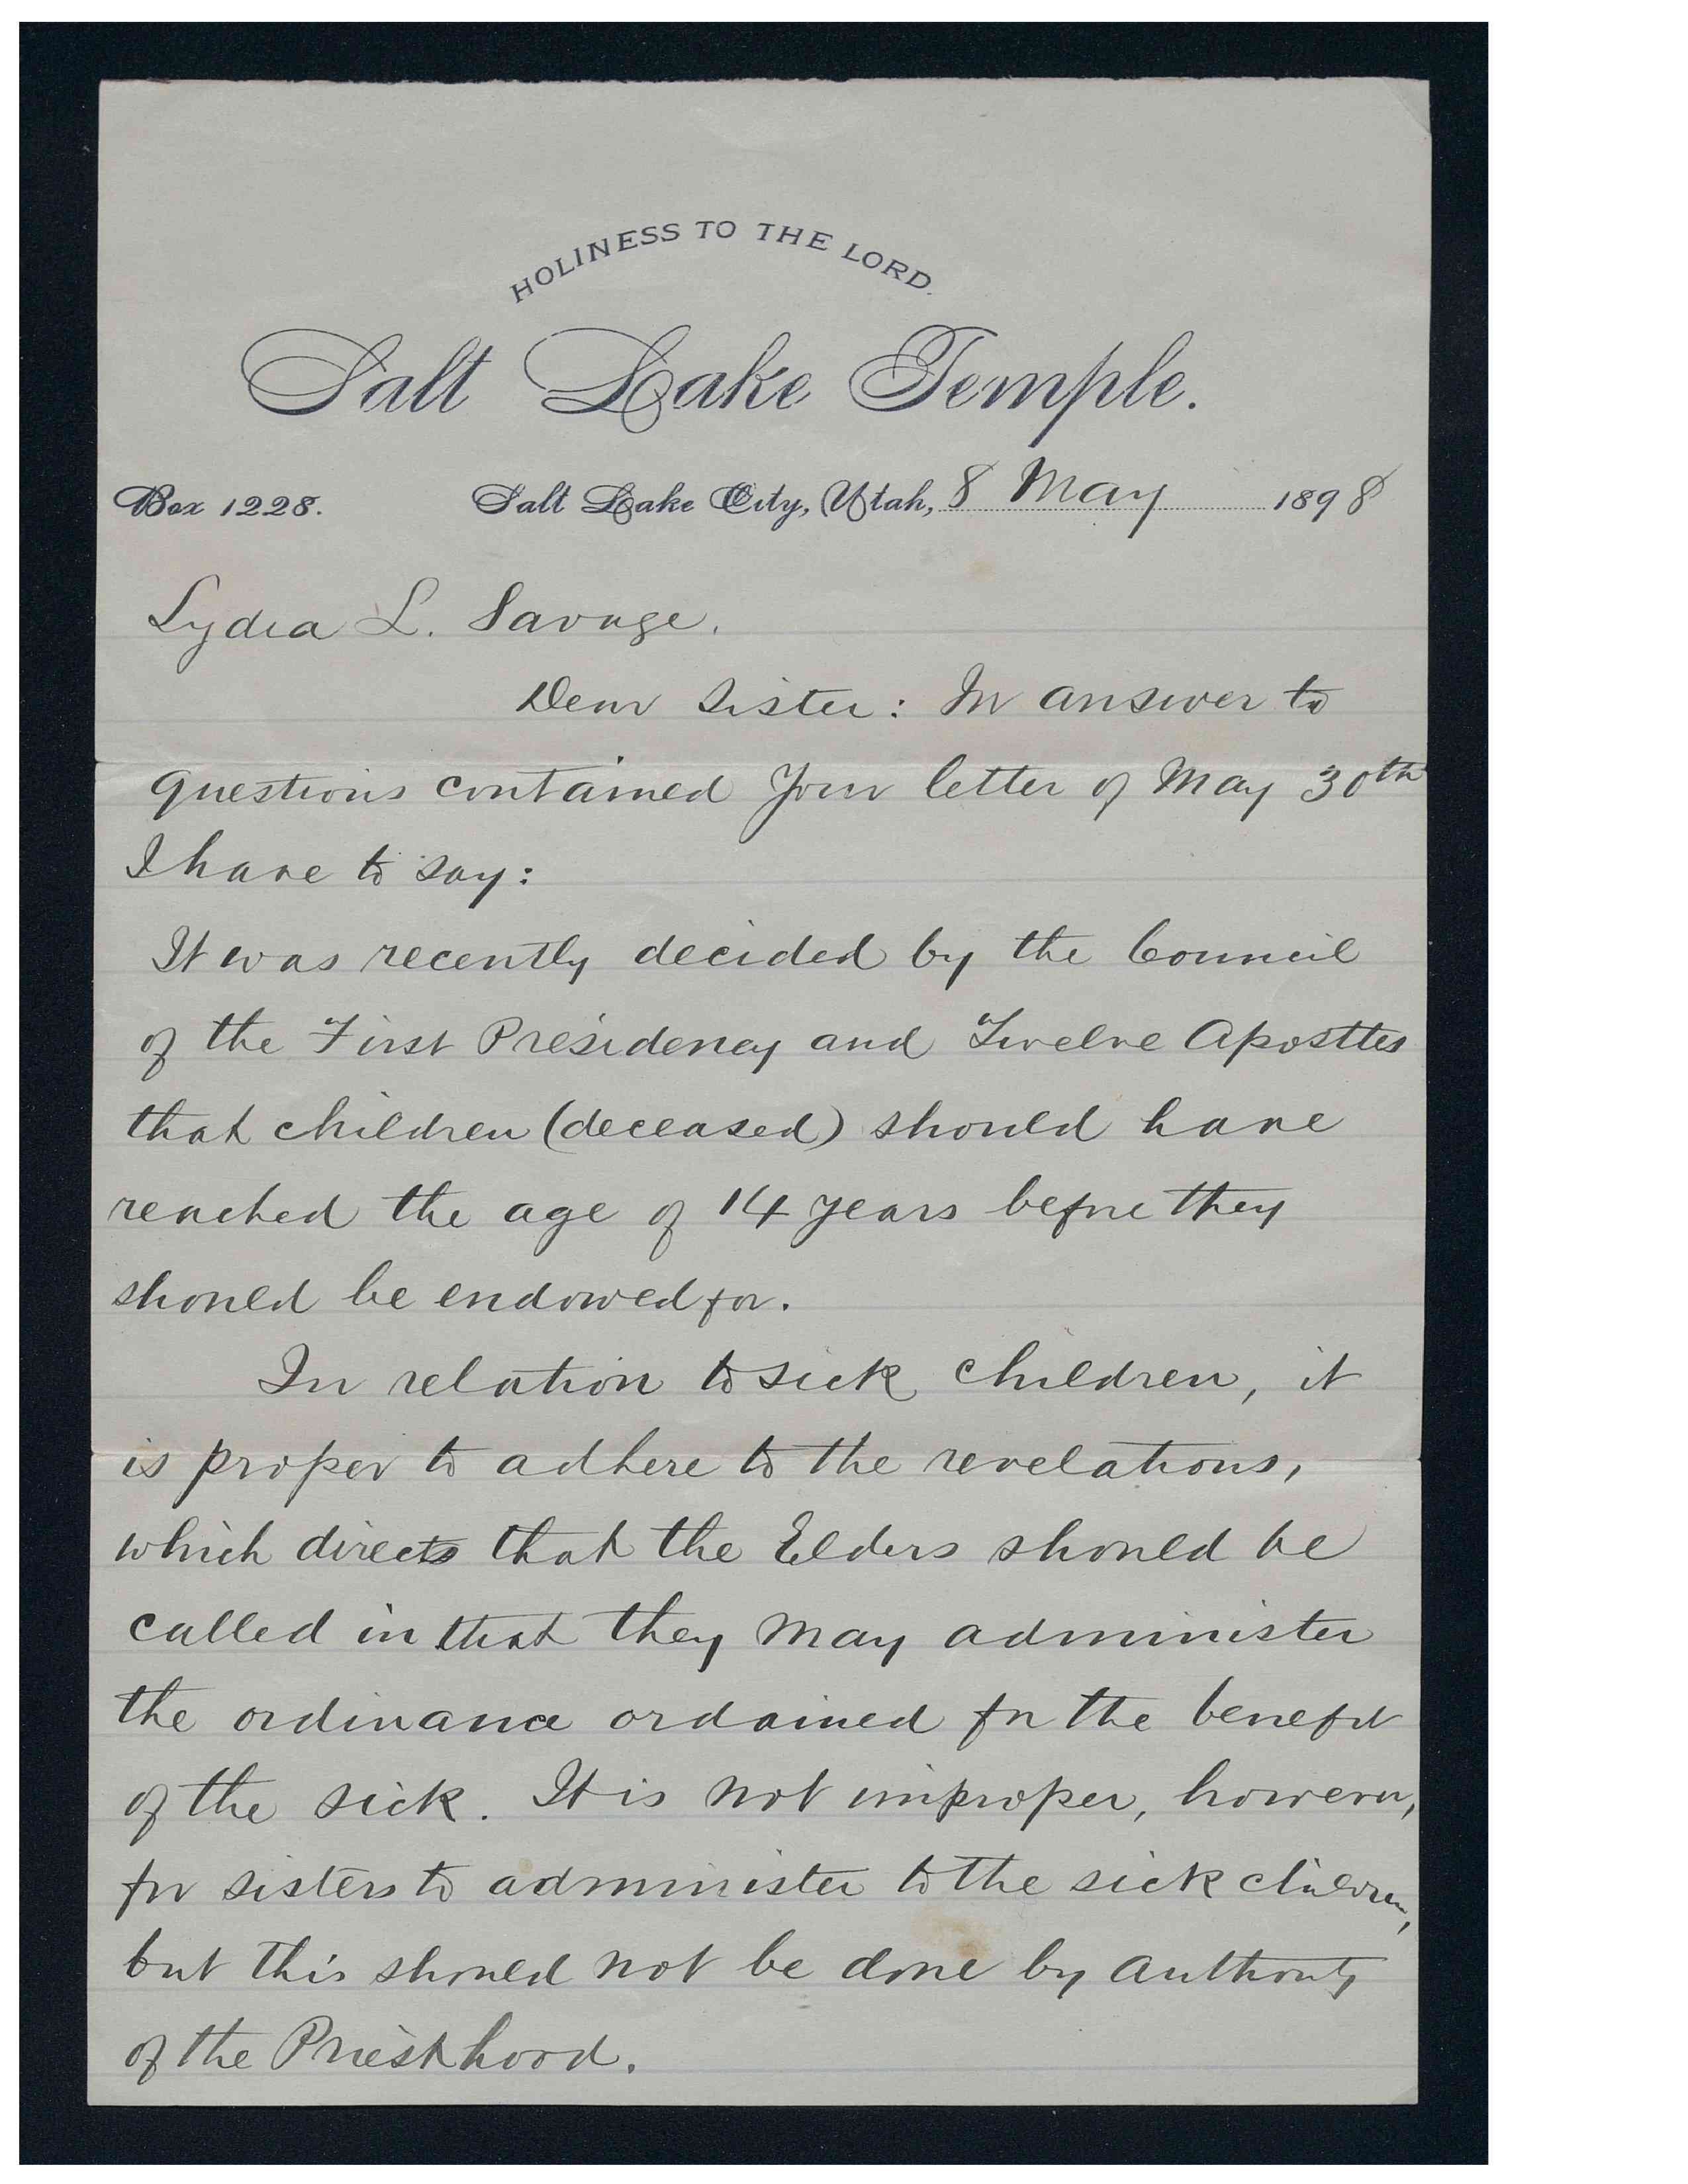 HOLINESS TO THE LORD.
Salt Lake Temple.
Box 1228. Salt Lake City, Utah, 8 May 1898
Lydia L. Savage.
Dear Sister: In answer to
questions contained your letter of May 30th
I have to say:
It was recently decided by the Council
of the First Presidency and Twelve Apostles
that children (deceased) should have
reached the age of 14 years before they
should be endowed for.
In relation to sick children, it
is proper to adhere to the revelations,
which directs that the Elders should be
called in that they may administer
the ordinance ordained for the benefit
of the sick. It is not improper, however,
for sisters to administer to the sick children,
but this should not be done by authority
of the Priesthood.